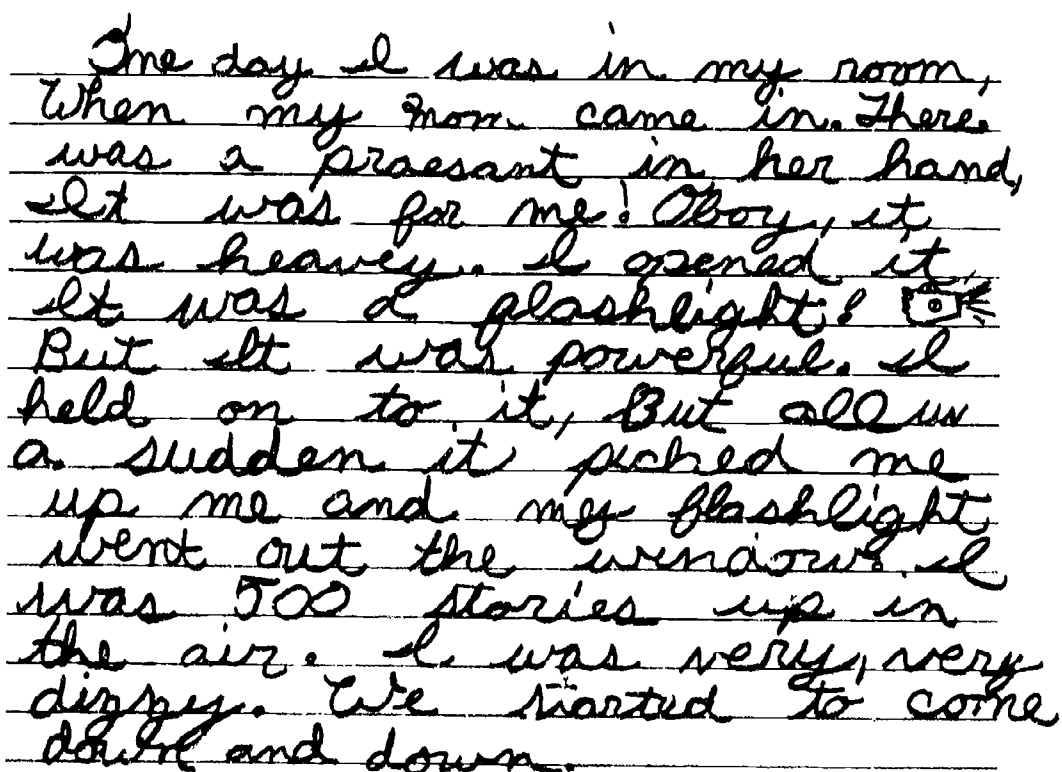 One day I was in my room,
When my mom came in. There
was a praesant in her hand,
It was for me! Oboy, it
was heavey. I opened it,
It was a flashlight!
But It was powerful. I
held on to it, But all in
a sudden it picked me
up me and my flashlight
went out the window. I
was 500 stories up in
the air. I was very, very
dizzy. We started to come
down and down.